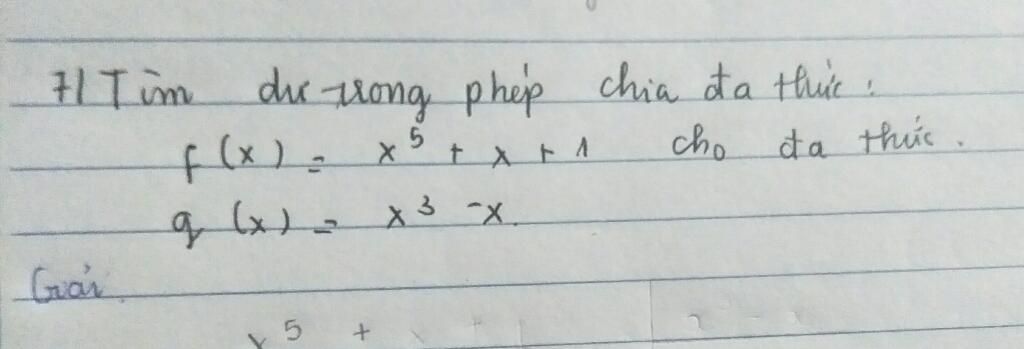 7/ Tìm dư trong phép chia đa thức :
f(x) = x⁵ + x + 1 cho đa thức.
g(x) = x³ - x.
Giải.
x⁵ +